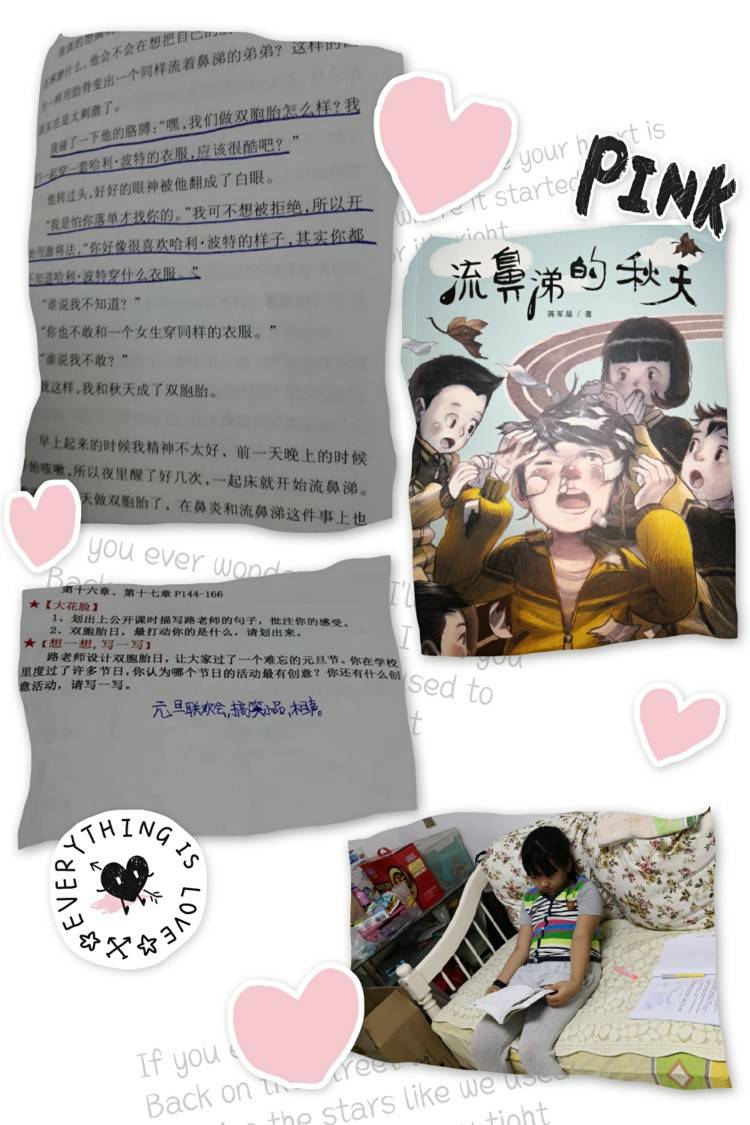 我碰了一下他的胳膊:“嘿,我们做双胞胎怎么样?我
一起穿一套哈利·波特的衣服,应该很酷吧?”
他转过头,好好的眼神被他翻成了白眼。
“我是怕你落单才找你的。”我可不想被拒绝,所以开
用激将法,“你好像很喜欢哈利·波特的样子,其实你都
不知道哈利·波特穿什么衣服。”
“谁说我不知道?”
“你也不敢和一个女生穿同样的衣服。”
“谁说我不敢?”
就这样,我和秋天成了双胞胎。
早上起来的时候我精神不太好,前一天晚上的时候
始咳嗽,所以夜里醒了好几次,一起床就开始流鼻涕。
天做双胞胎了,在鼻炎和流鼻涕这件事上也
PINK
流鼻涕的秋天
蒋军晶/著
第十六章、第十七章 P144-166
★【大花脸】
1、划出上公开课时描写路老师的句子,批注你的感受。
2、双胞胎日,最打动你的是什么,请划出来。
★【想一想,写一写】
路老师设计双胞胎日,让大家过了一个难忘的元旦节。你在学校
里度过了许多节日,你认为哪个节日的活动最有创意?你还有什么创
意活动,请写一写。
元旦联欢会,搞笑小品,相声。
you ever wonde
used to
EVERYTHING IS LOVE
If you e
Back on the street
the stars like we used